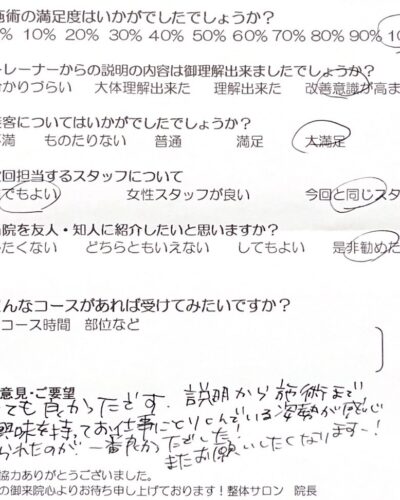 施術の満足度はいかがでしたでしょうか？
% 10% 20% 30% 40% 50% 60% 70% 80% 90% 10
レーナーからの説明の内容は御理解出来ましたでしょうか？
かりづらい 大体理解出来た 理解出来た 改善意識が高ま
接客についてはいかがでしたでしょうか？
満 ものたりない 普通 満足 大満足
回担当するスタッフについて
でもよい 女性スタッフが良い 今回と同じスタ
院を友人・知人に紹介したいと思いますか？
たくない どちらともいえない してもよい 是非勧めた
んなコースがあれば受けてみたいですか？
コース時間 部位など
意見・ご要望
ても良かったです。説明から施術まで
興味を持ってお仕事にとりくんでいる姿勢が感じ
られたのが一番良かったでした！
またお願いしたくなりますー！
協力ありがとうございました。
の御来院心よりお待ち申し上げております！整体サロン 院長